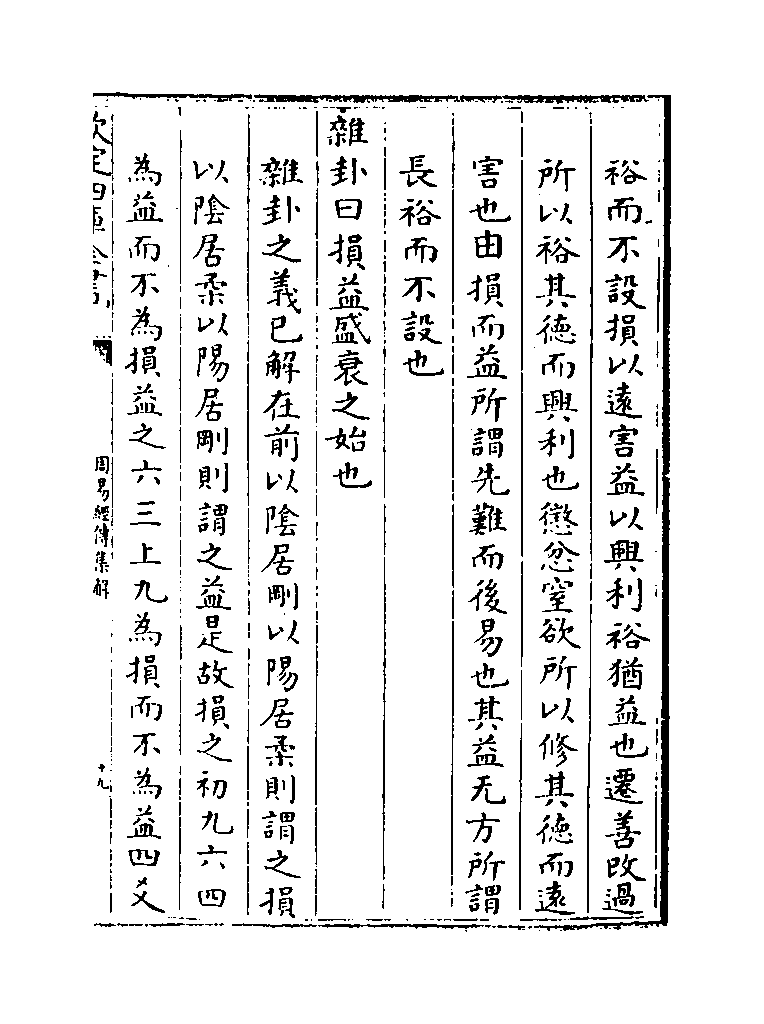 裕而不設損以遠害益以興利裕猶益也遷善改過
所以裕其德而興利也懲忿窒欲所以修其德而遠
害也由損而益所謂先難而後易也其益无方所謂
長裕而不設也
雜卦曰損益盛衰之始也
雜卦之義已解在前以陰居剛以陽居柔則謂之損
以陰居柔以陽居剛則謂之益是故損之初九六四
為益而不為損益之六三上九為損而不為益四爻
欽定四庫全書
周易經傳集解
十九